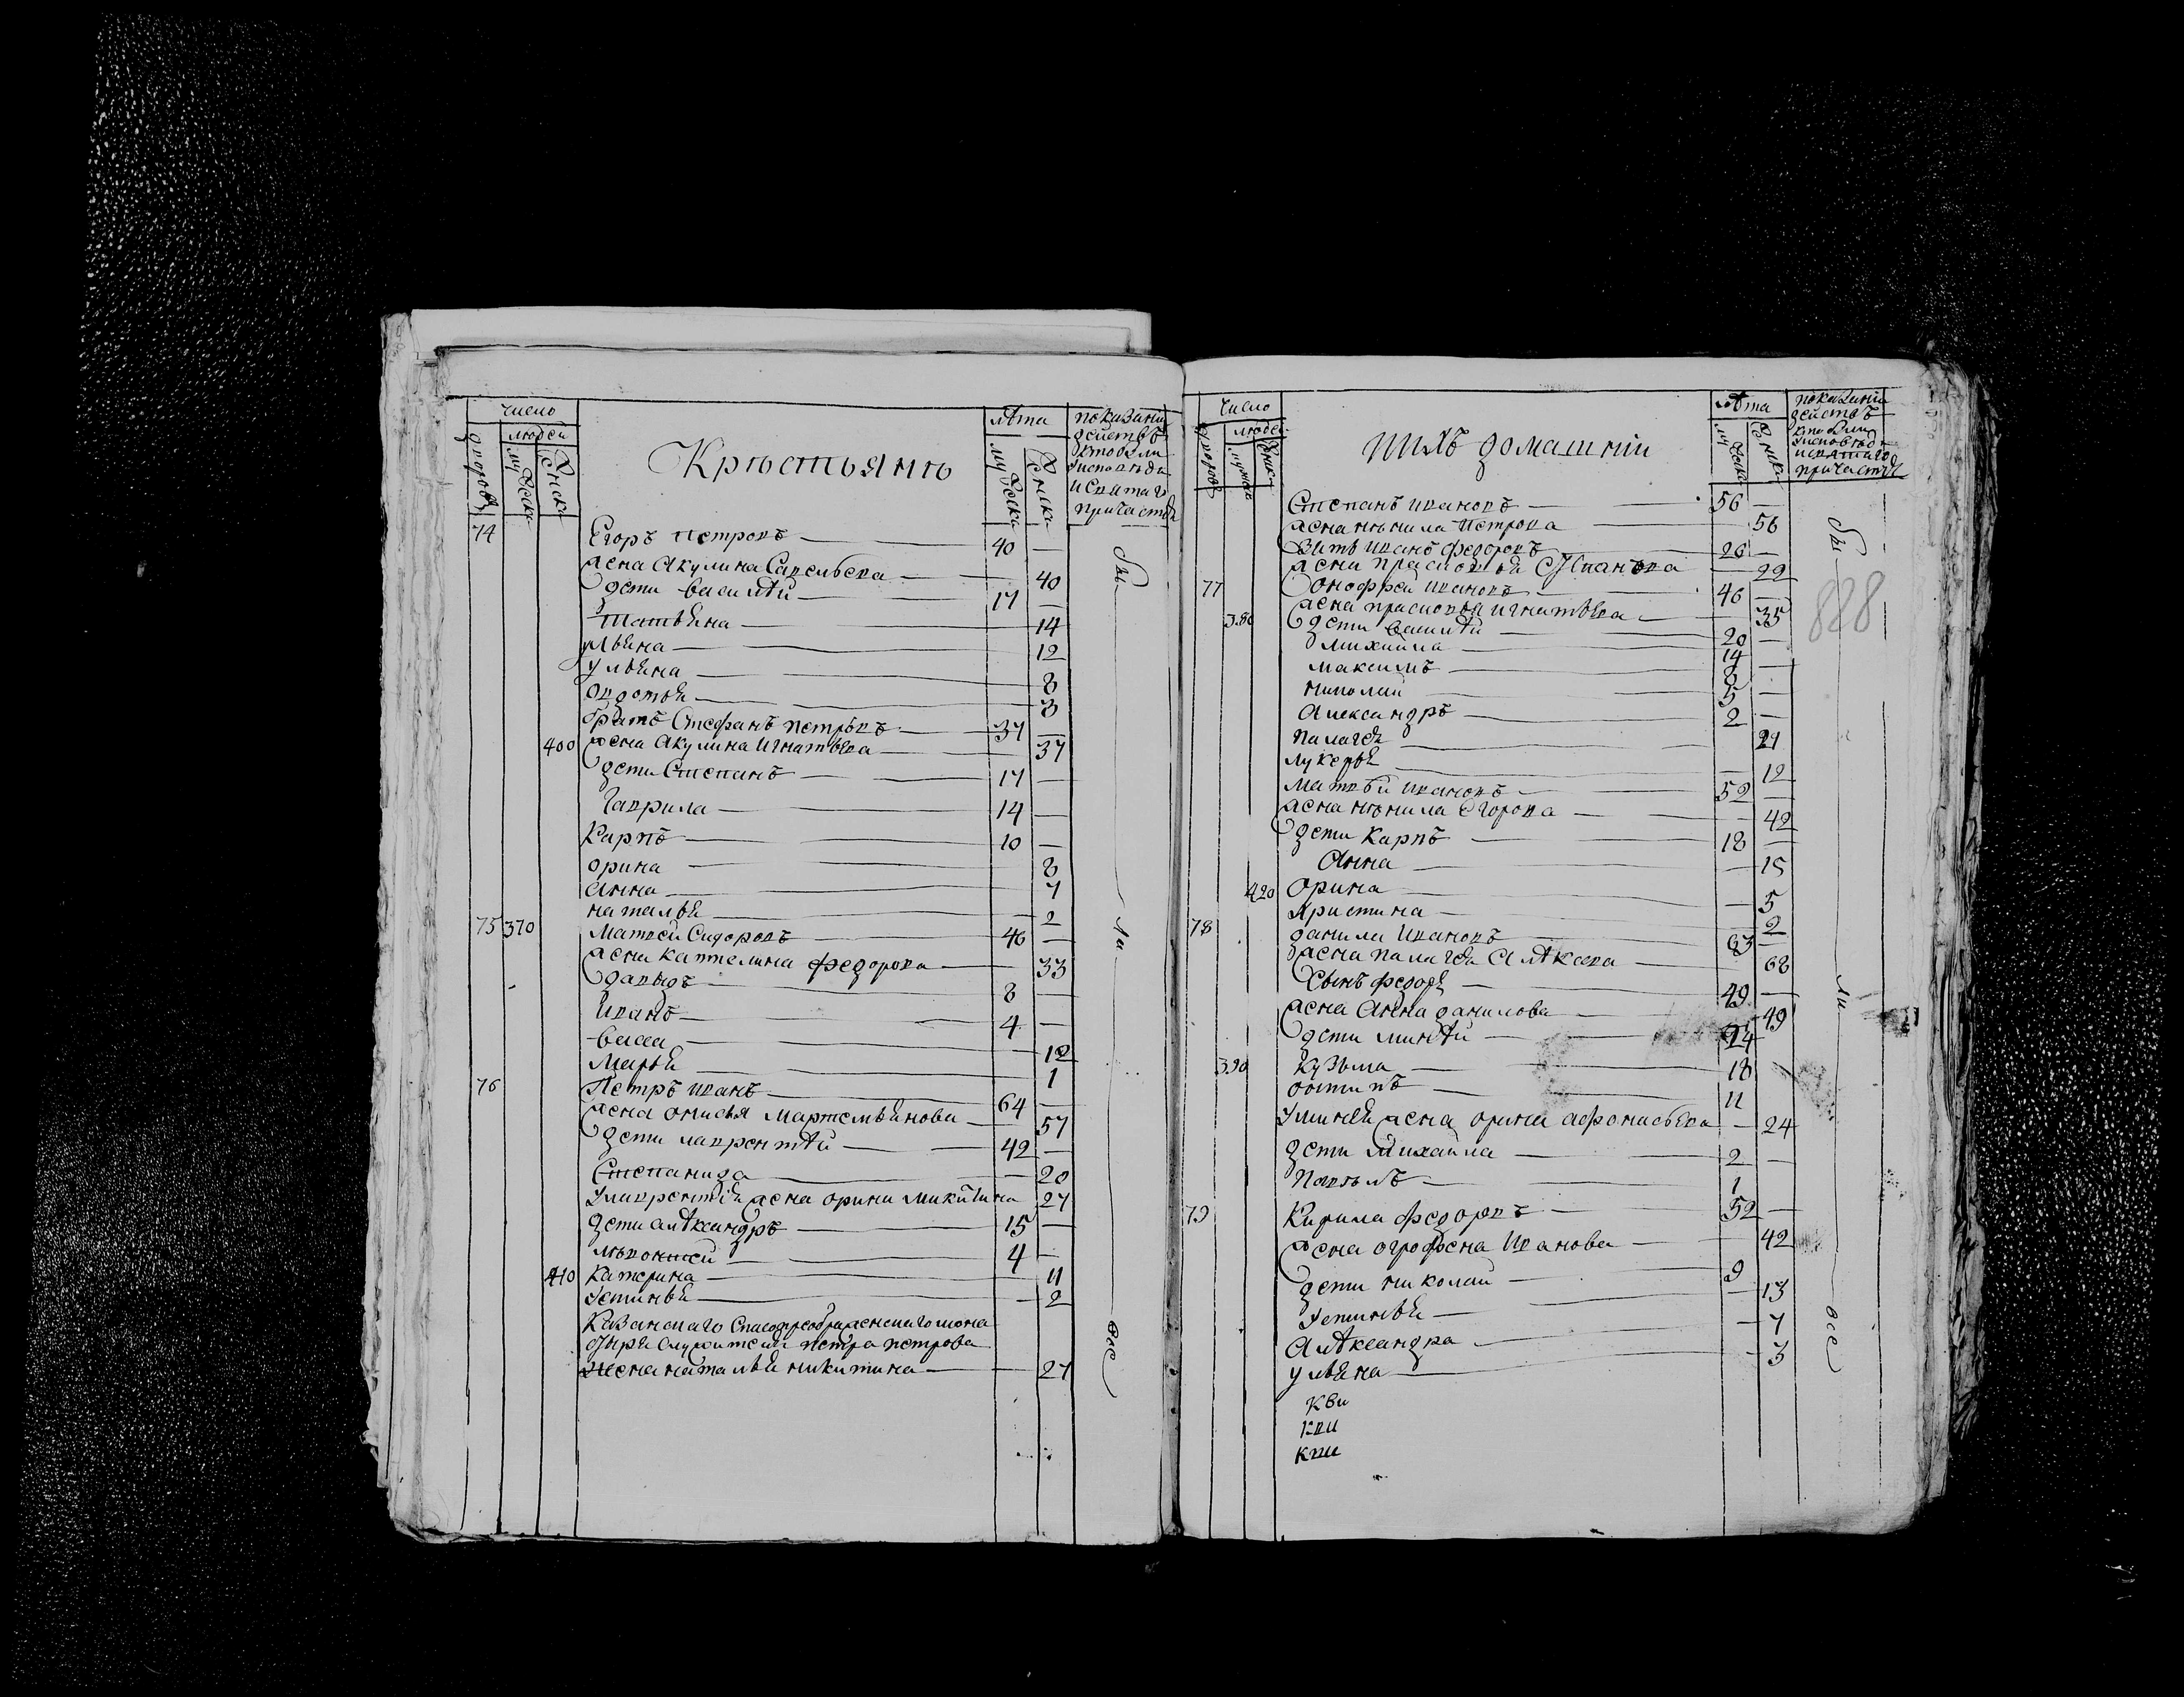 число
людей
дворов
муҗеска
женска
Крѣстьянѣ
лѣта
муҗеска
женска
показани
действъ
кто были
у исповѣди
и святаго
причастия
74
Егоръ Петровъ 40
жена Акулина Савельева 40
дети Василѣй 17
Татьяна 14
ульяна 12
ульяна 8
овдотья 3
братъ Стефанъ петровъ 37
400 жена Акулина Игнатьева 37
дети Степанъ 17
Гаврила 14
Карпъ 10
орина 8
анна 7
наталья 2
75 370 Матвей Сидоровъ 46
жена Каттелина федорова 33
давыдъ 8
Иванъ 4
васса 12
Марья 1
76 Петръ Иванъ 64
жена онисья Мартемьянова 57
дети лаврентѣй 42
Степанида 20
У лаврентья жена орина Микитина 27
дети алѣксандръ 15
лѣвонтей 4
410 Катерина 11
Устинья 2
Казанскаго Спасопреображенскаго мона
стыря служителя петра петрова
жена наталья никитина 27
бы
ли
все
число
людей
дворовъ
мужеска
женска
ихъ домашнии
лѣта
муҗеска
женска
показании
действъ
кто были
у исповѣди
и святаго
причастия
888
Степанъ ивановъ 56
жена ненила Петрова 56
Зять иванъ федоровъ 26
жена прасковья Степанова 29
77 Онофрей ивановъ 46
жена прасковья игнатьева 35
380 дети василѣй 20
михайла 14
максимъ 8
николай 5
Александръ 2
палагея 21
лукерья 12
Матвѣй ивановъ 52
жена ненила Егорова 42
дети Карпъ 18
Анна 15
420 орина 5
Христина 2
78 данила Ивановъ 63
жена палагея Алѣксева 68
Сынъ федоръ 49
жена Анна данилова 49
дети минѣй 24
390 Кузьма 18
остипъ 11
У минея жена орина афонасьева 24
дети Михаила 2
Павелъ 1
79 Кирила федоровъ 52
жена огрофена Иванова 42
дети николай 9
Устинья 13
Алѣксандра 7
ульяна 3
кви
кви
кпи
бы
ли
все